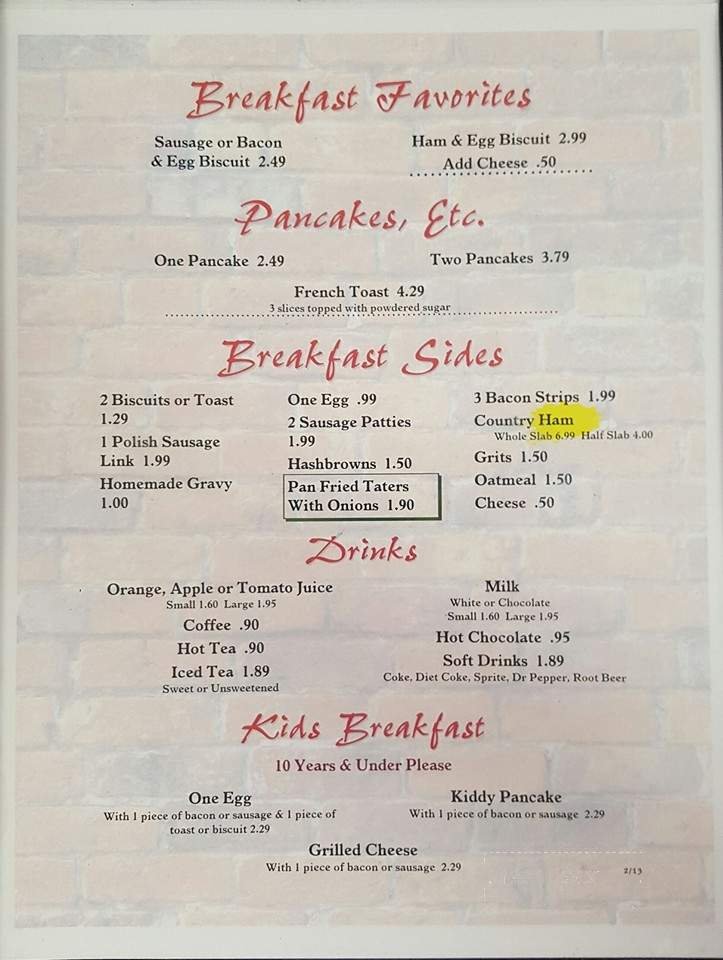 Breakfast Favorites
Sausage or Bacon
& Egg Biscuit 2.49
Ham & Egg Biscuit 2.99
Add Cheese .50
Pancakes, Etc.
One Pancake 2.49
Two Pancakes 3.79
French Toast 4.29
3 slices topped with powdered sugar
Breakfast Sides
2 Biscuits or Toast
1.29
1 Polish Sausage
Link 1.99
Homemade Gravy
1.00
One Egg .99
2 Sausage Patties
1.99
Hashbrowns 1.50
Pan Fried Taters
With Onions 1.90
3 Bacon Strips 1.99
Country Ham
Whole Slab 6.99 Half Slab 4.00
Grits 1.50
Oatmeal 1.50
Cheese .50
Drinks
Orange, Apple or Tomato Juice
Small 1.60 Large 1.95
Coffee .90
Hot Tea .90
Iced Tea 1.89
Sweet or Unsweetened
Milk
White or Chocolate
Small 1.60 Large 1.95
Hot Chocolate .95
Soft Drinks 1.89
Coke, Diet Coke, Sprite, Dr Pepper, Root Beer
Kids Breakfast
10 Years & Under Please
One Egg
With 1 piece of bacon or sausage & 1 piece of
toast or biscuit 2.29
Kiddy Pancake
With 1 piece of bacon or sausage 2.29
Grilled Cheese
With 1 piece of bacon or sausage 2.29
2/13